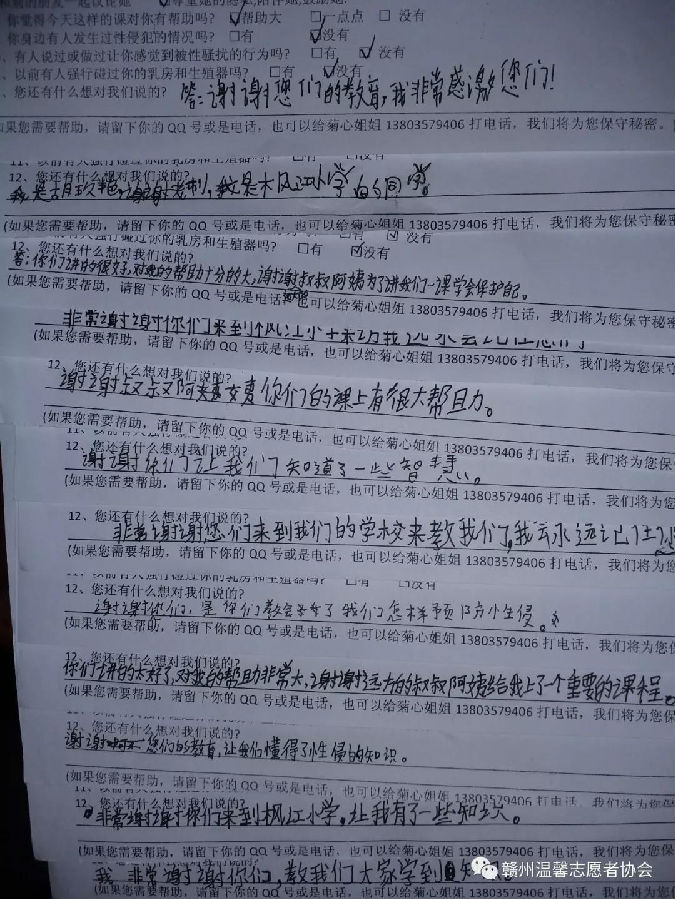 你觉得今天这样的课对你有帮助吗? ☑帮助大 □一点点 □ 没有
你身边有人发生过性侵犯的情况吗? □有 ☑没有
、有人说过或做过让你感觉到被性骚扰的行为吗? □有 ☑没有
、以前有人强行碰过你的乳房和生殖器吗? □有 ☑没有
、您还有什么想对我们说的? 答:谢谢您们的教育,我非常感谢您们!
如果您需要帮助,请留下你的QQ号或是电话,也可以给菊心姐姐 13803579406 打电话,我们将为您保守秘密。
12、您还有什么想对我们说的?
(如果您需要帮助,请留下你的QQ号或是电话,也可以给菊心姐姐 13803579406 打电话,我们将为您保守秘密
乳房和生殖器吗? □有 ☑ 没有
12、您还有什么想对我们说的? □有 ☑没有
答:你们讲的很好,对我的帮助十分的大,谢谢叔叔阿姨为了讲我们一课学会保护自己。
(如果您需要帮助,请留下你的QQ号或是电话,也可以给菊心姐姐 13803579406 打电话,我们将为您保守
非常谢谢你们来到枫江小
(如果您需要帮助,请留下你的QQ号或是电话,也可以给菊心姐姐 13803579406 打电话,我们将为您保守
12、您还有什么想对我们说的?
谢谢叔叔阿姨你们的课上有很大帮助。
(如果您需要帮助,请留下你的QQ号或是电话,也可以给菊心姐姐 13803579406 打电话,我们将为您保
12、您还有什么想对我们说的?
谢谢你们让我们知道了一些智慧。
(如果您需要帮助,请留下你的QQ号或是电话,也可以给菊心姐姐 13803579406 打电话,我们将为您
12、您还有什么想对我们说的?
非常谢谢您们来到我们的学校来教我们,我会永远记住
(如果您需要帮助,请留下你的QQ号或是电话,也可以给菊心姐姐 13803579406 打电话,我们将为
12、您还有什么想对我们说的? □有 □没有
谢谢你们,是你们教会了我们怎样预防性侵。
(如果您需要帮助,请留下你的QQ号或是电话,也可以给菊心姐姐 13803579406 打电话,我们将为您
12、您还有什么想对我们说的?
你们讲的太好了,对我的帮助非常大,谢谢远方的叔叔阿姨给我上了一个重要的课程。
(如果您需要帮助,请留下你的QQ号或是电话,也可以给菊心姐姐 13803579406 打电话,我们将为您保
12、您还有什么想对我们说的?
谢谢您们的教育,让我们懂得了性侵的知识。
(如果您需要帮助,请留下你的QQ号或是电话,也可以给菊心姐姐 13803579406 打电话,我们将为您
12、您还有什么想对我们说的?
非常谢谢你们来到枫江小学。让我有了一些知识。
(如果您需要帮助,请留下你的QQ号或是电话,也可以给菊心姐姐 13803579406 打电话,我们
我非常谢谢你们,教我们大家学到
(如果您需要帮助,请留下你的QQ号或是电话,也可以给菊心姐姐 13803579406
赣州温馨志愿者协会